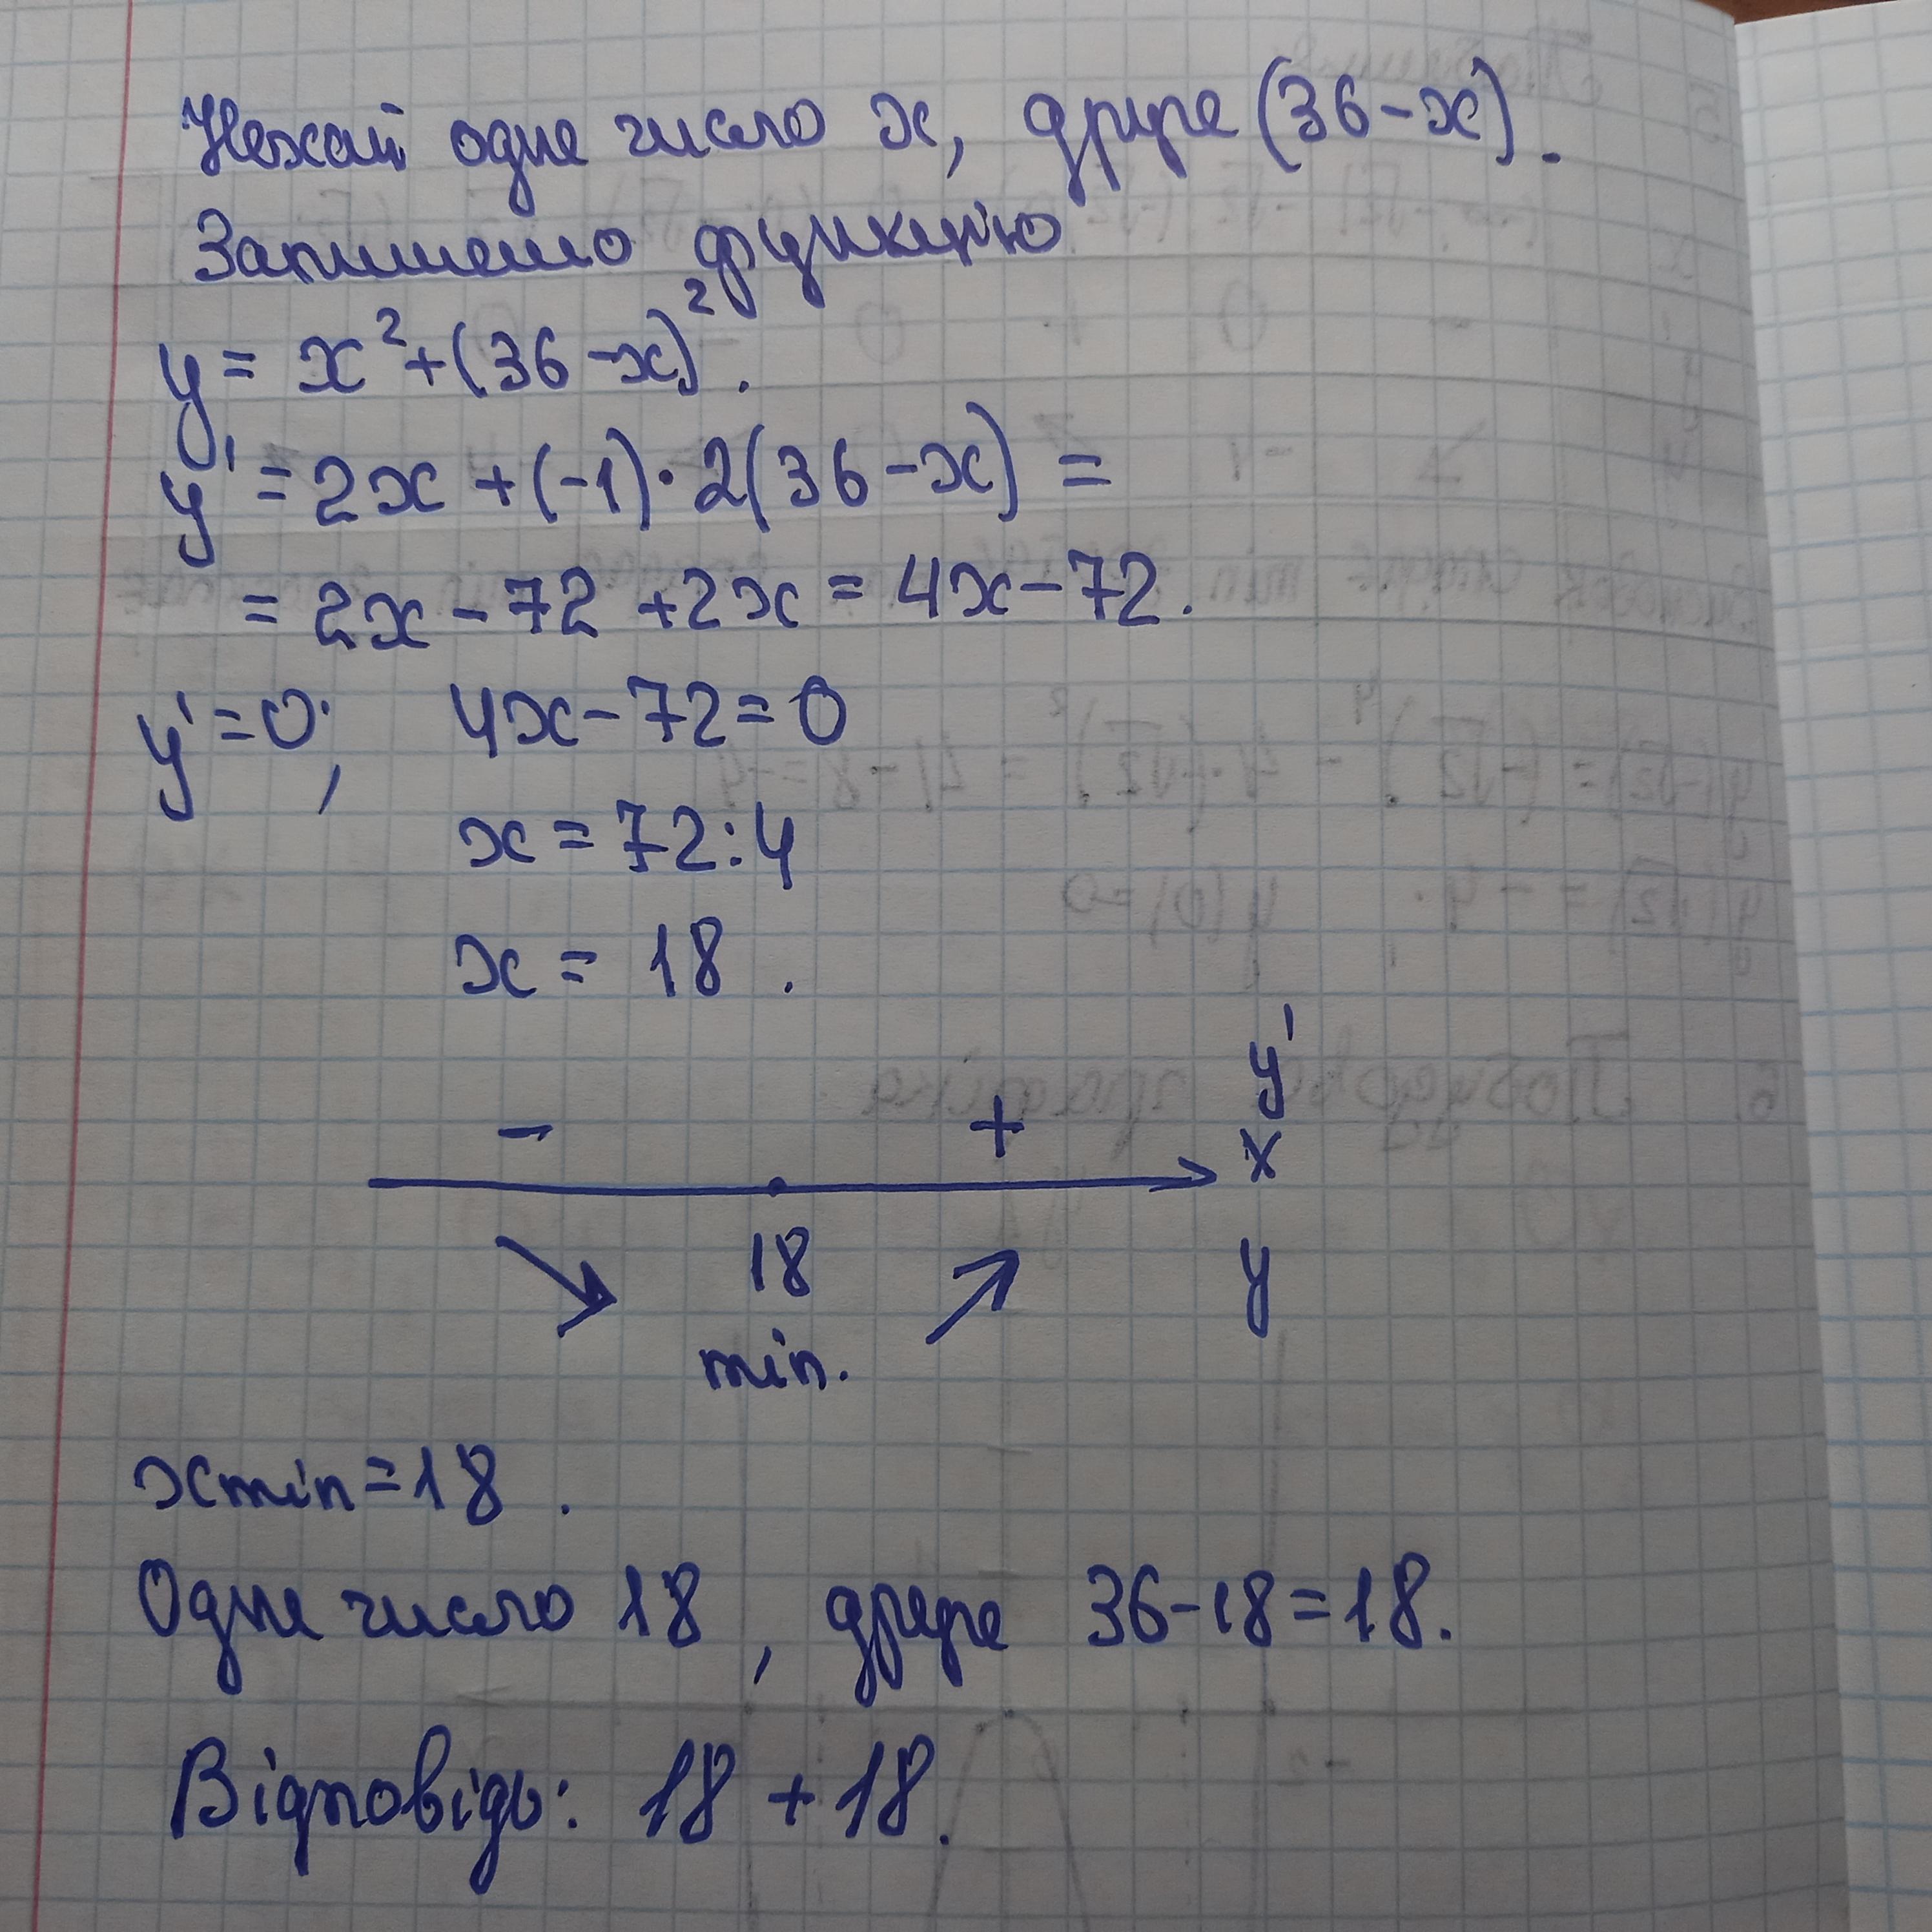 Нехай одне число x, друге (36-x).
Запишемо функцію
y = x² + (36-x)².
y' = 2x + (-1)·2(36-x) =
= 2x - 72 + 2x = 4x - 72.
y' = 0; 4x - 72 = 0
x = 72:4
x = 18.
y'
- + x
18 y
min.
xmin = 18.
Одне число 18, друге 36-18=18.
Відповідь: 18 + 18.